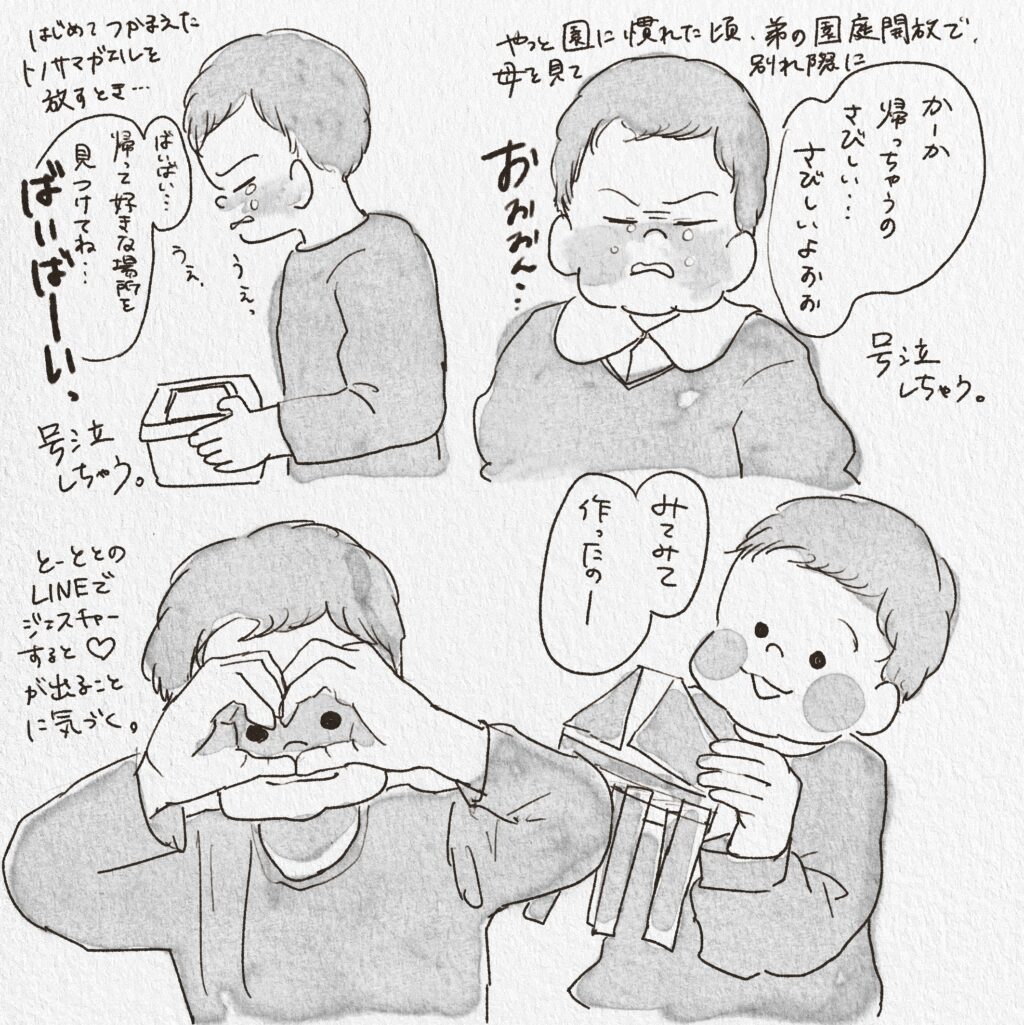 はじめてつかまえた
トノサマガエルを
放すとき…
ばいばい…
帰って好きな場所を
見つけてね…
ばいばーい。
うえ、
うぇっ
号泣
しちゃう。
やっと園に慣れた頃、弟の園庭開放で、
母を見て
別れ際に
かーか
帰っちゃうの
さびしい…
さびしいよおお
おおおん…
号泣
しちゃう。
とーととの
LINEで
ジェスチャー
すると♡
が出ること
に気づく。
みてみて
作ったのー